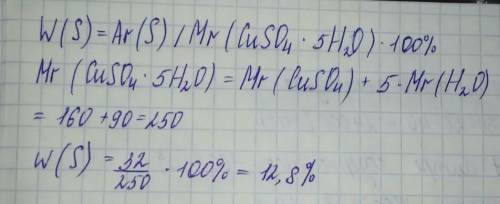 W(S) = Ar(S) / Mr(CuSO₄ · 5H₂O) · 100%
Mr(CuSO₄ · 5H₂O) = Mr(CuSO₄) + 5·Mr(H₂O)
= 160 + 90 = 250
W(S) = 32/250 · 100% = 12,8%